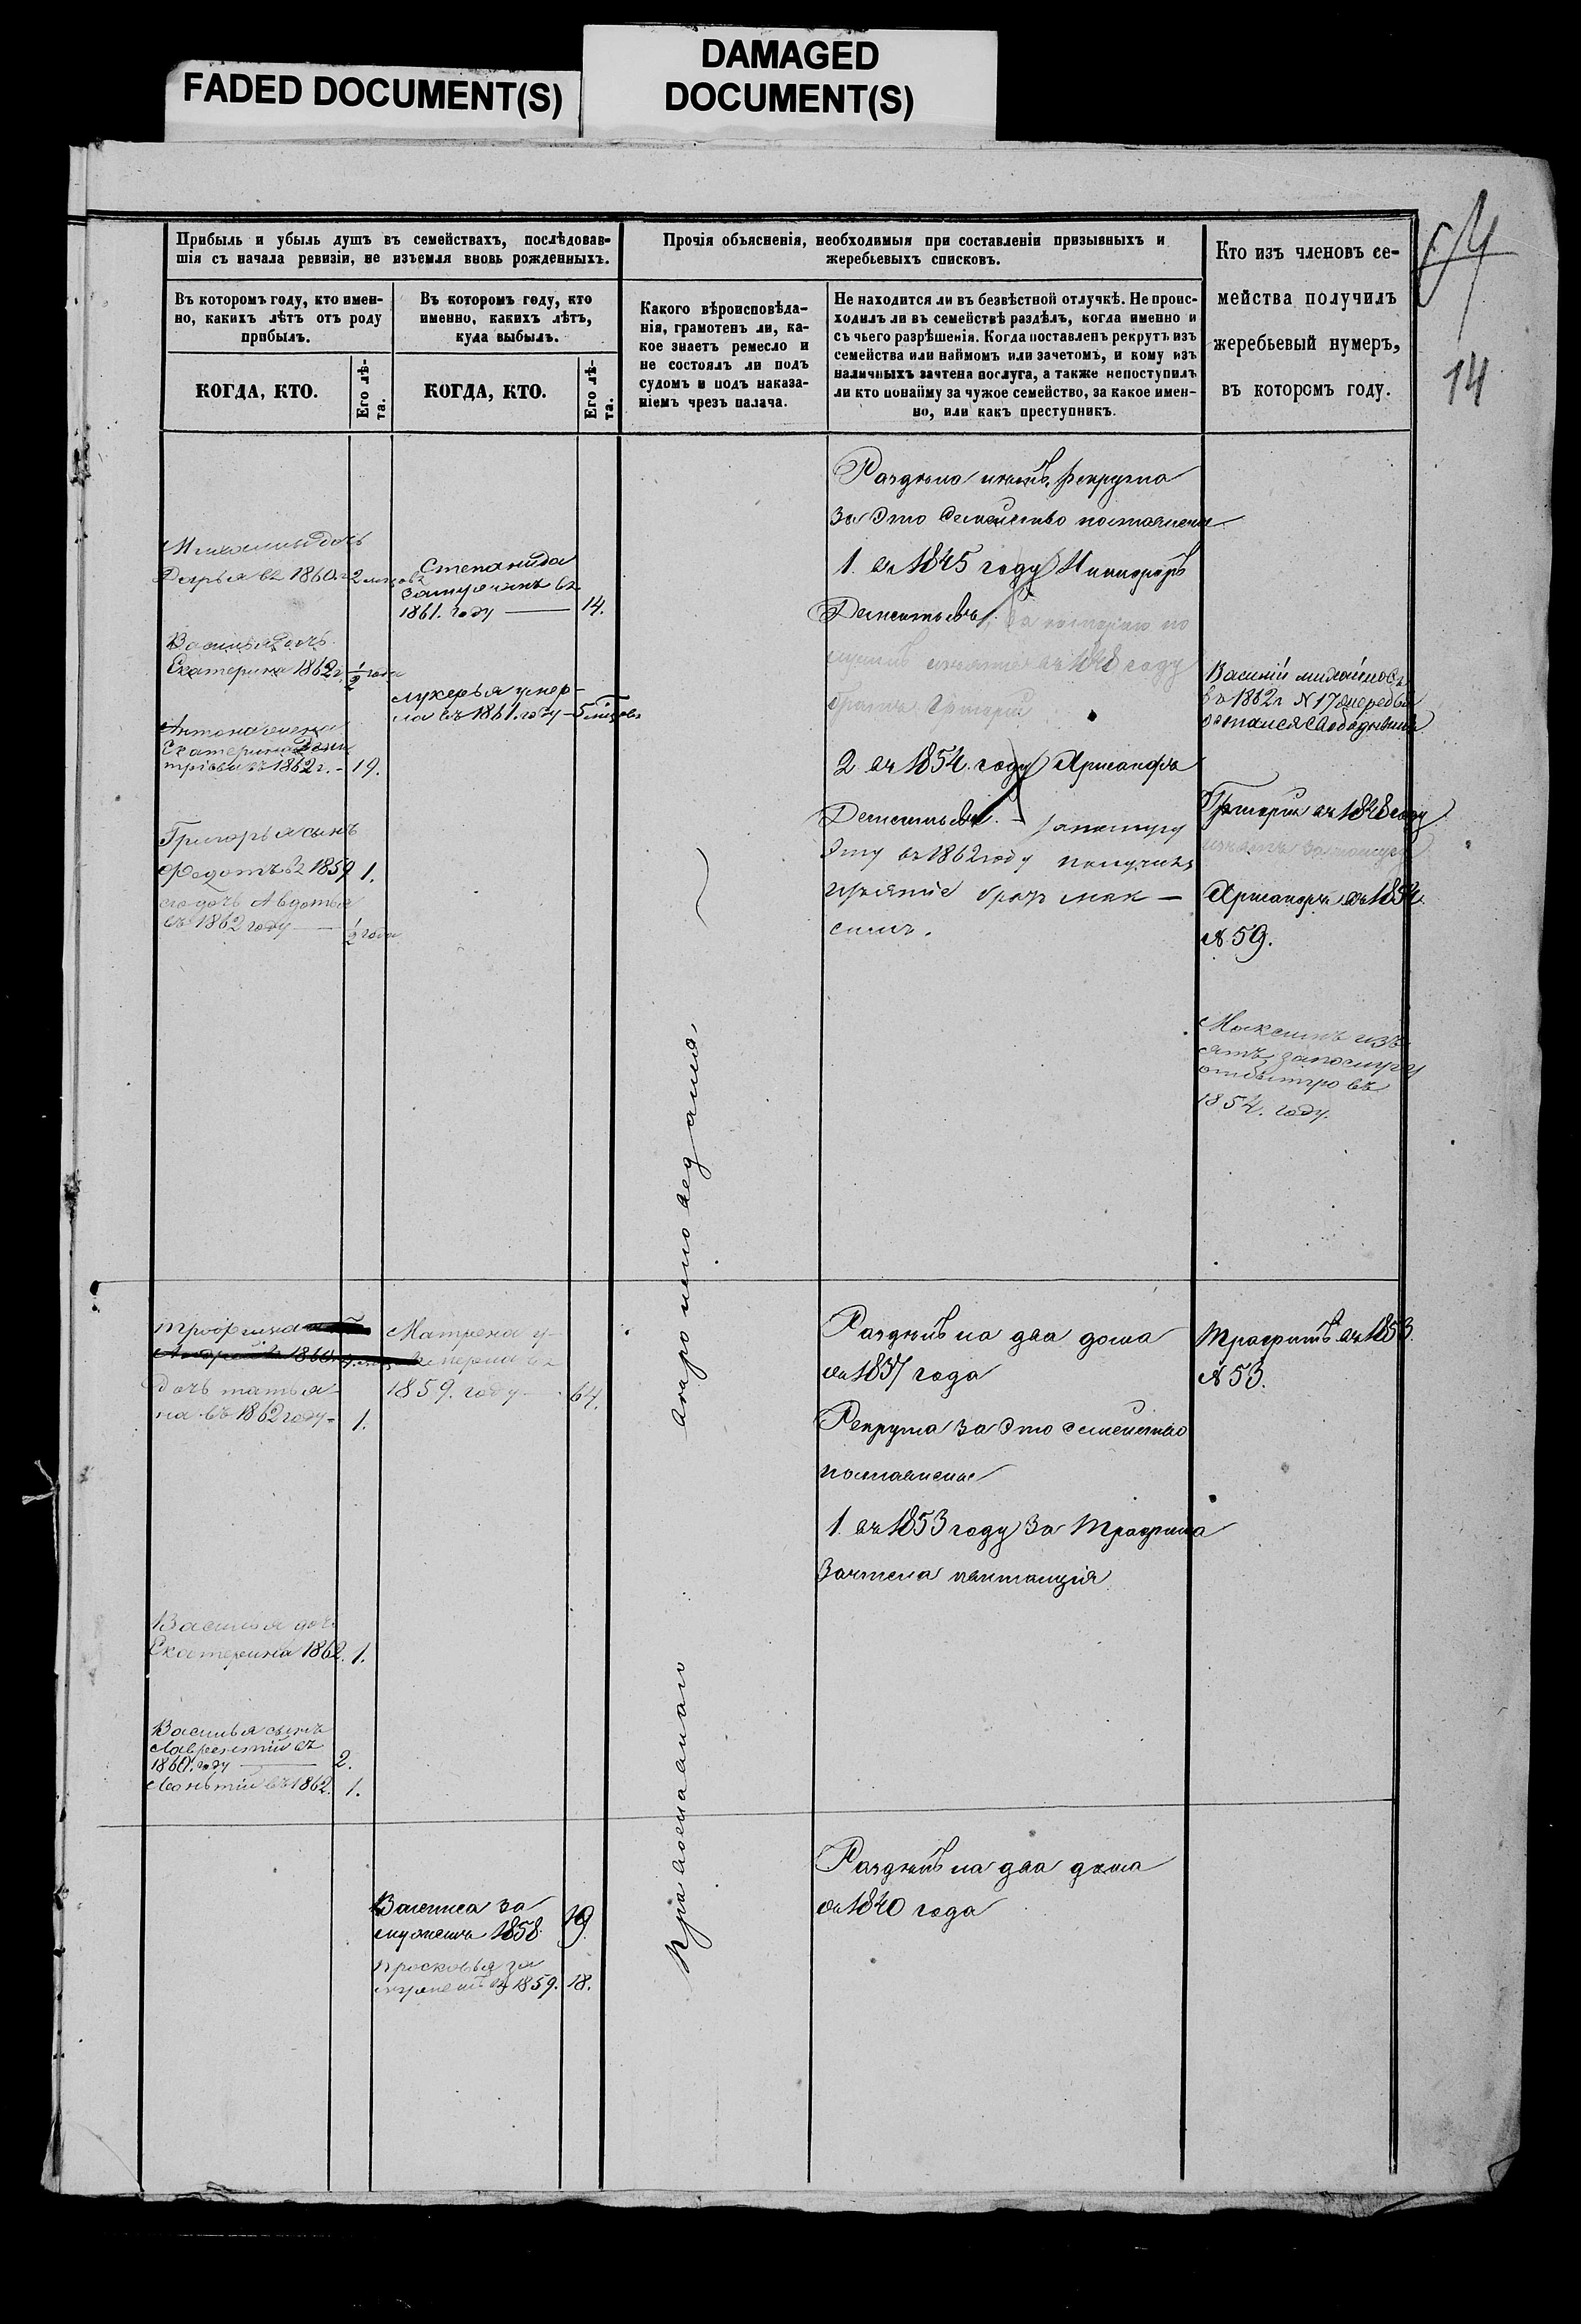 FADED DOCUMENT(S)
DAMAGED
DOCUMENT(S)
14
Прибыль и убыль душъ въ семействахъ, послѣдовав-
шія съ начала ревизіи, не изъемля вновь рожденныхъ.
Прочія объясненія, необходимыя при составленіи призывныхъ и
жеребьевыхъ списковъ.
Кто изъ членовъ се-
мейства получилъ
жеребьевый нумеръ,
въ которомъ году.
Въ которомъ году, кто имен-
но, какихъ лѣтъ отъ роду
прибылъ.
Въ которомъ году, кто
именно, какихъ лѣтъ,
куда выбылъ.
Какого вѣроисповѣда-
нія, грамотенъ ли, ка-
кое знаетъ ремесло и
не состоялъ ли подъ
судомъ и подъ наказа-
ніемъ чрезъ палача.
Не находится ли въ безвѣстной отлучкѣ. Не проис-
ходилъ ли въ семействѣ раздѣлъ, когда именно и
съ чьего разрѣшенія. Когда поставленъ рекрутъ изъ
семейства или наймомъ или зачетомъ, и кому изъ
наличныхъ зачтена послуга, а также непоступилъ
ли кто понайму за чужое семейство, за какое имен-
но, или какъ преступникъ.
КОГДА, КТО.
Его лѣ-
та.
КОГДА, КТО.
Его лѣ-
та.
Михайлы дочь
Дарья въ 1860 г. 2
Василья дочь
Екатерина 1862 г. 1/2 года
Антона жена
Екатерина Дми
тріева въ 1862 г. - 19.
Григорья сынъ
Федотъ въ 1859 1.
его дочь Авдотья
въ 1862 году — 1/2 года
Степанида
замужемъ въ
1861. году — 14.
Лукерья умер-
ла въ 1861. году -
Раздѣла нѣтъ, рекрута
за это семейство поставлены
1. въ 1845 году Никифоръ
Дементьевъ, за которого по
въ 1848 году
братъ Григорій
2 въ 1854. году
Дементьевъ. - запослугу
эту въ 1862 году получилъ
изъятіе братъ Мак-
симъ.
Василій Михайловъ
въ 1862 г N 17
Григорій въ 1848 году
въ 1854.
№ 59.
Максимъ изъ
ятъ запослугу
въ
1854. году.
Православнаго вѣроисповѣданія
Трофима
Андрей въ 1860.
дочь Татья-
на въ 1862 году - 1.
Василья дочь
Екатерина 1862. 1.
Василья сынъ
Лаврентій въ
году — 2.
въ 1862. 1.
Матрена у-
мерла въ
1859. году — 64.
Раздѣлъ на два дома
съ 1837 года
Рекрута за это семейство
поставлены
1. въ 1853 году за Трофима
зачтена квитанція
Трофимъ въ 1853.
№ 53.
за
мужемъ 1858. 19.
Просковья за
мужемъ въ 1859. 18.
Раздѣлъ на два дома
съ 1840 года